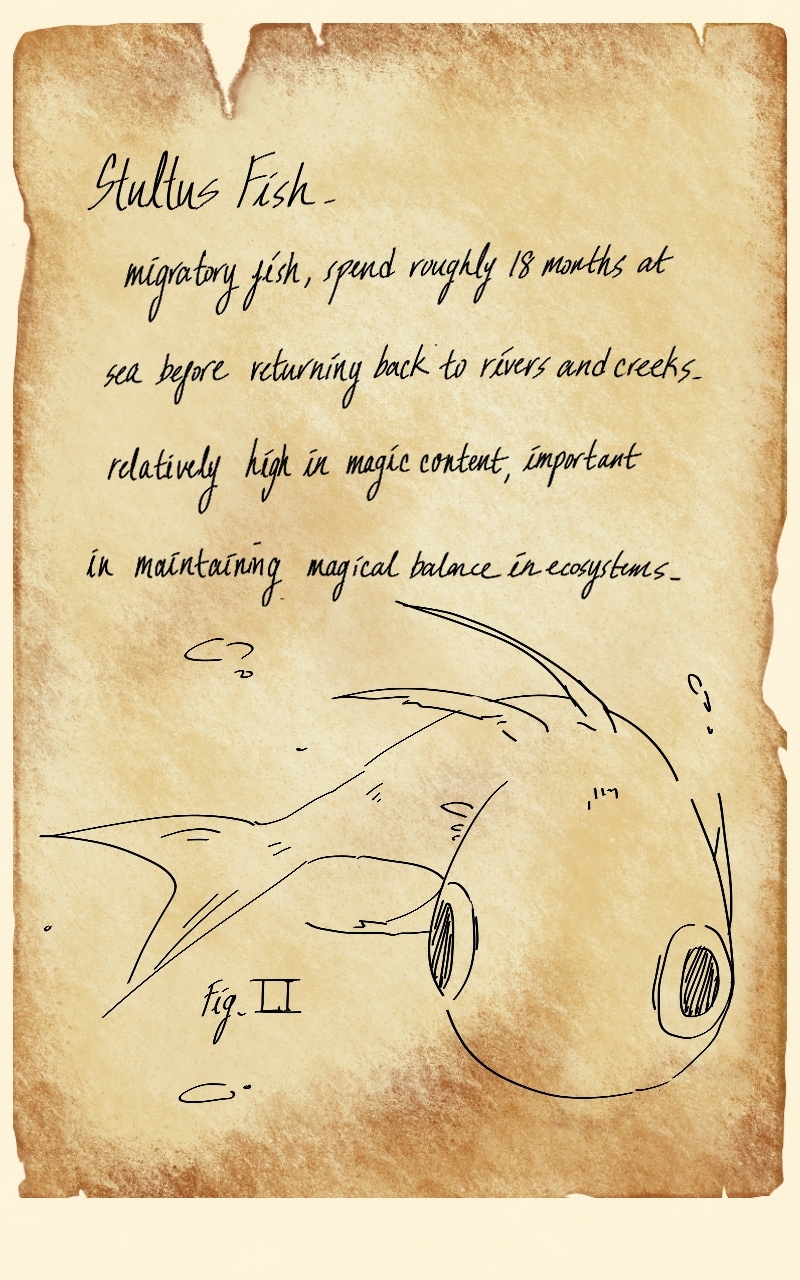 Stultus Fish -
migratory fish, spend roughly 18 months at
sea before returning back to rivers and creeks -
relatively high in magic content, important
in maintaining magical balance in ecosystems -
Fig. II